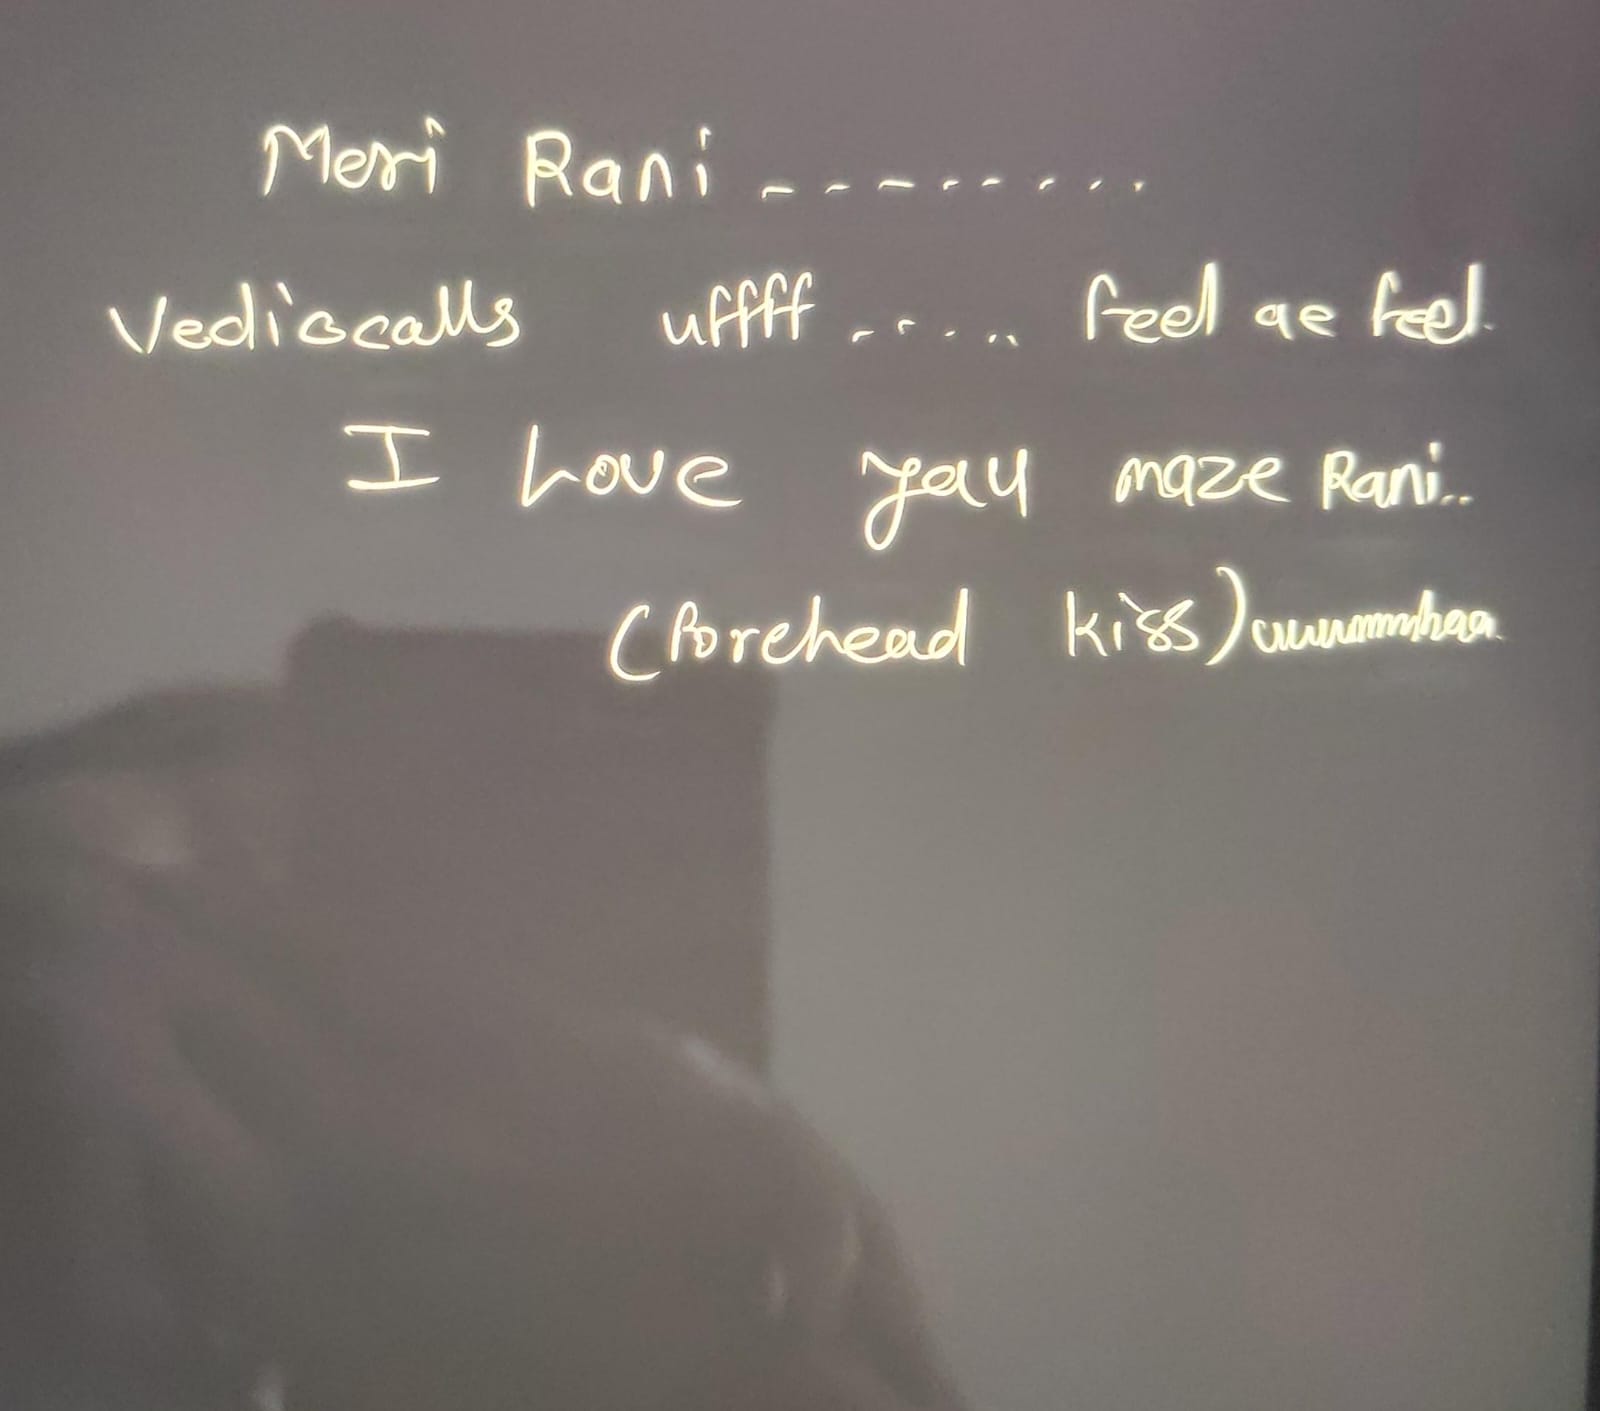 Meri Rani ---------
Vediocalls uffff ...... feel ae feel.
I Love you maze Rani..
(forehead kiss) uuuummmhaa.